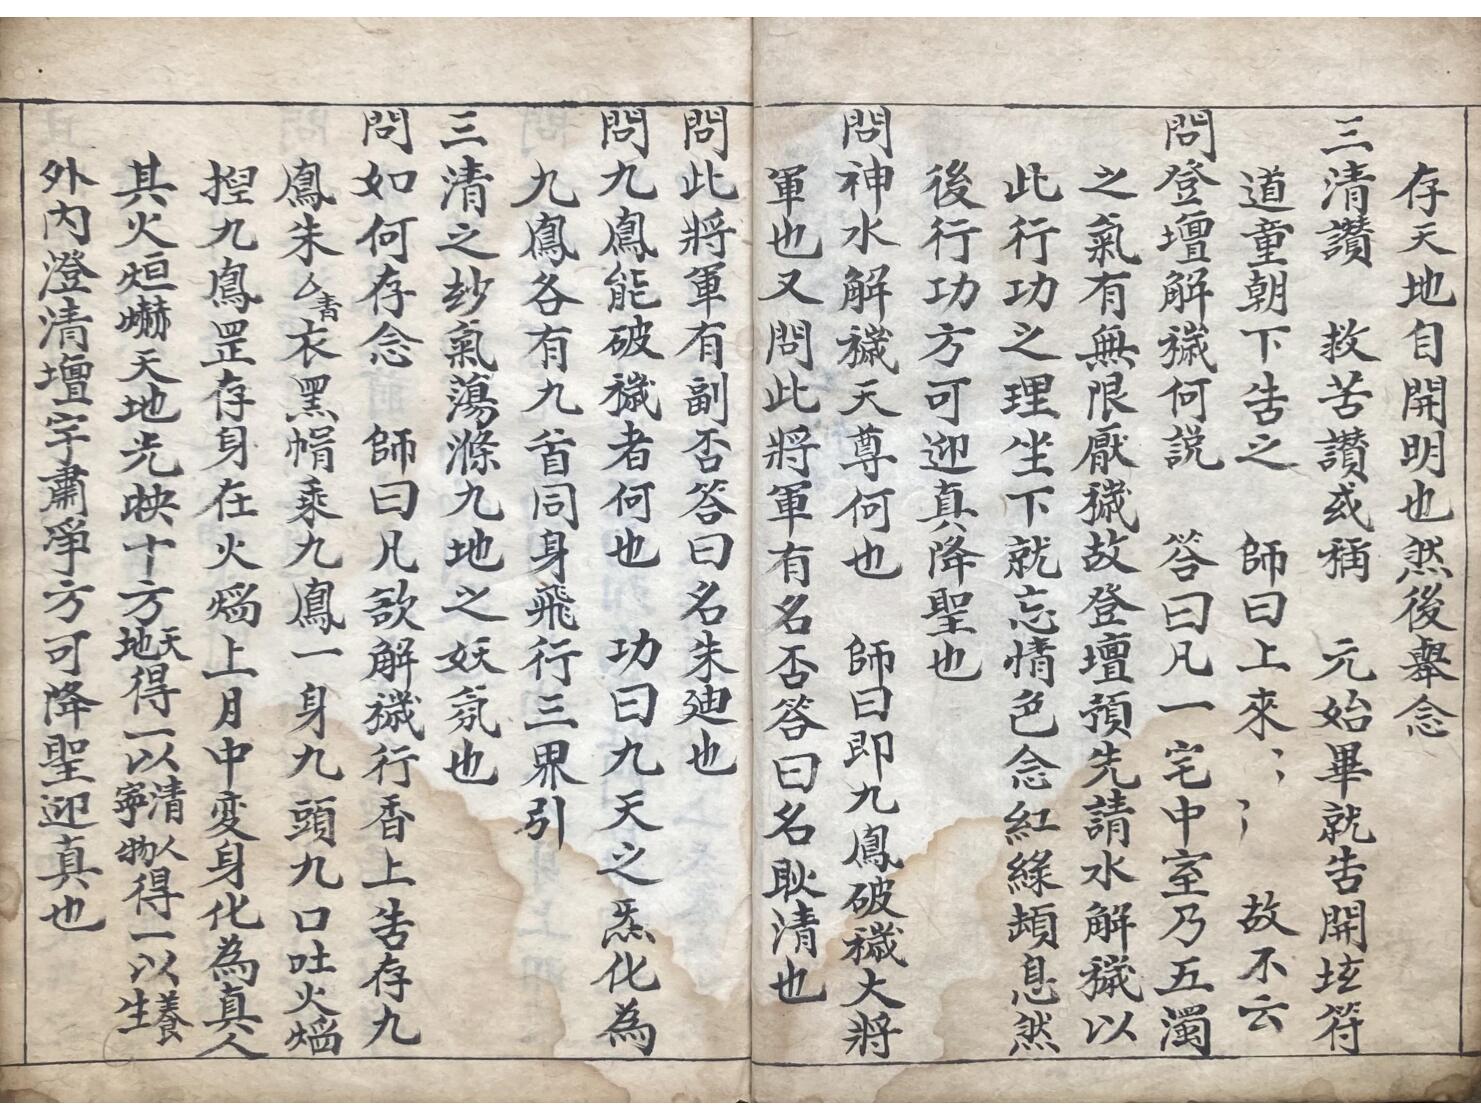 存天地自開明也然後舉念
三清讚　救苦讚或稱　元始畢就告開玹符
道童朝下告之　師曰上來〻〻　故不云
問登壇解穢何説　答曰凡一宅中室乃五濁
之氣有無限厭穢故登壇預先請水解穢以
此行功之理坐下就忘情色念紅緣頓息然
後行功方可迎真降聖也
問神水解穢天尊何也　師曰即九鳳破穢大將
軍也又問此將軍有名否答曰名耿清也
問此將軍有副否答曰名朱廸也
問九鳳能破穢者何也　功曰九天之炁化為
九鳳各有九首同身飛行三界引
三清之玅氣蕩滌九地之妖氛也
問如何存念　師曰凡欲解穢行香上告存九
鳳朱厶書衣黑幘乘九鳳一身九頭九口吐火焰
揑九鳳罡存身在火焰上月中变身化為真人
其火烜爀天地光映十方天地得一以清寧人物得一以養生
外内澄清壇宇肅淨方可降聖迎真也